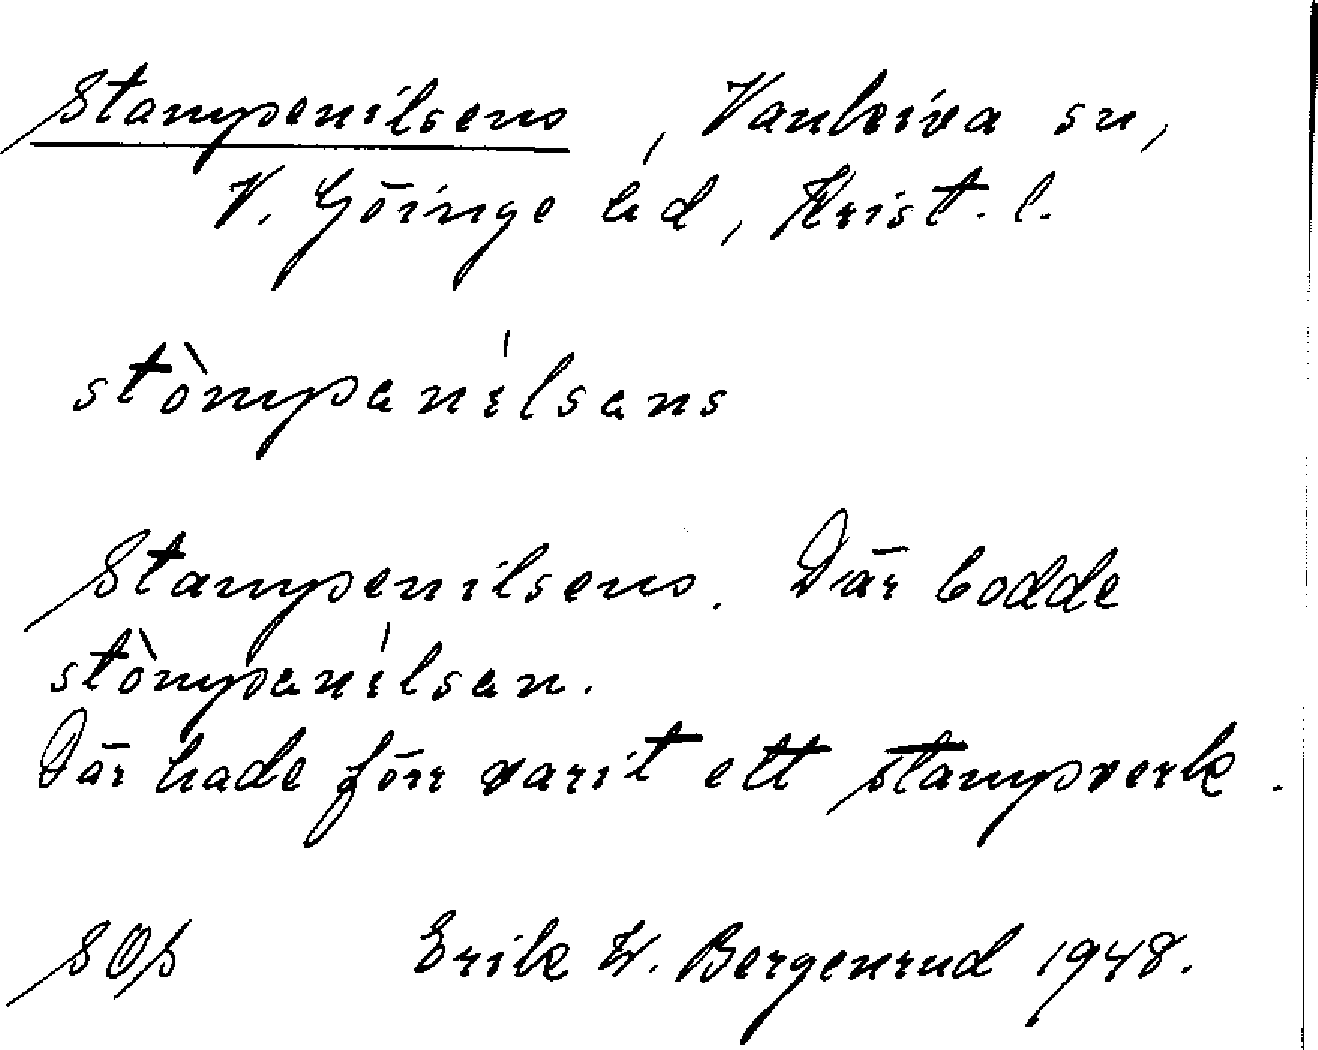 Stampenilsens, Vankiva sn,
V. Göinge hd, Krist. l.
stòmpanílsans
Stampenilsens. Där bodde
stòmpanílsan.
Där hade förr varit ett stampverk.
SOs Erik W. Bergenrud 1948.